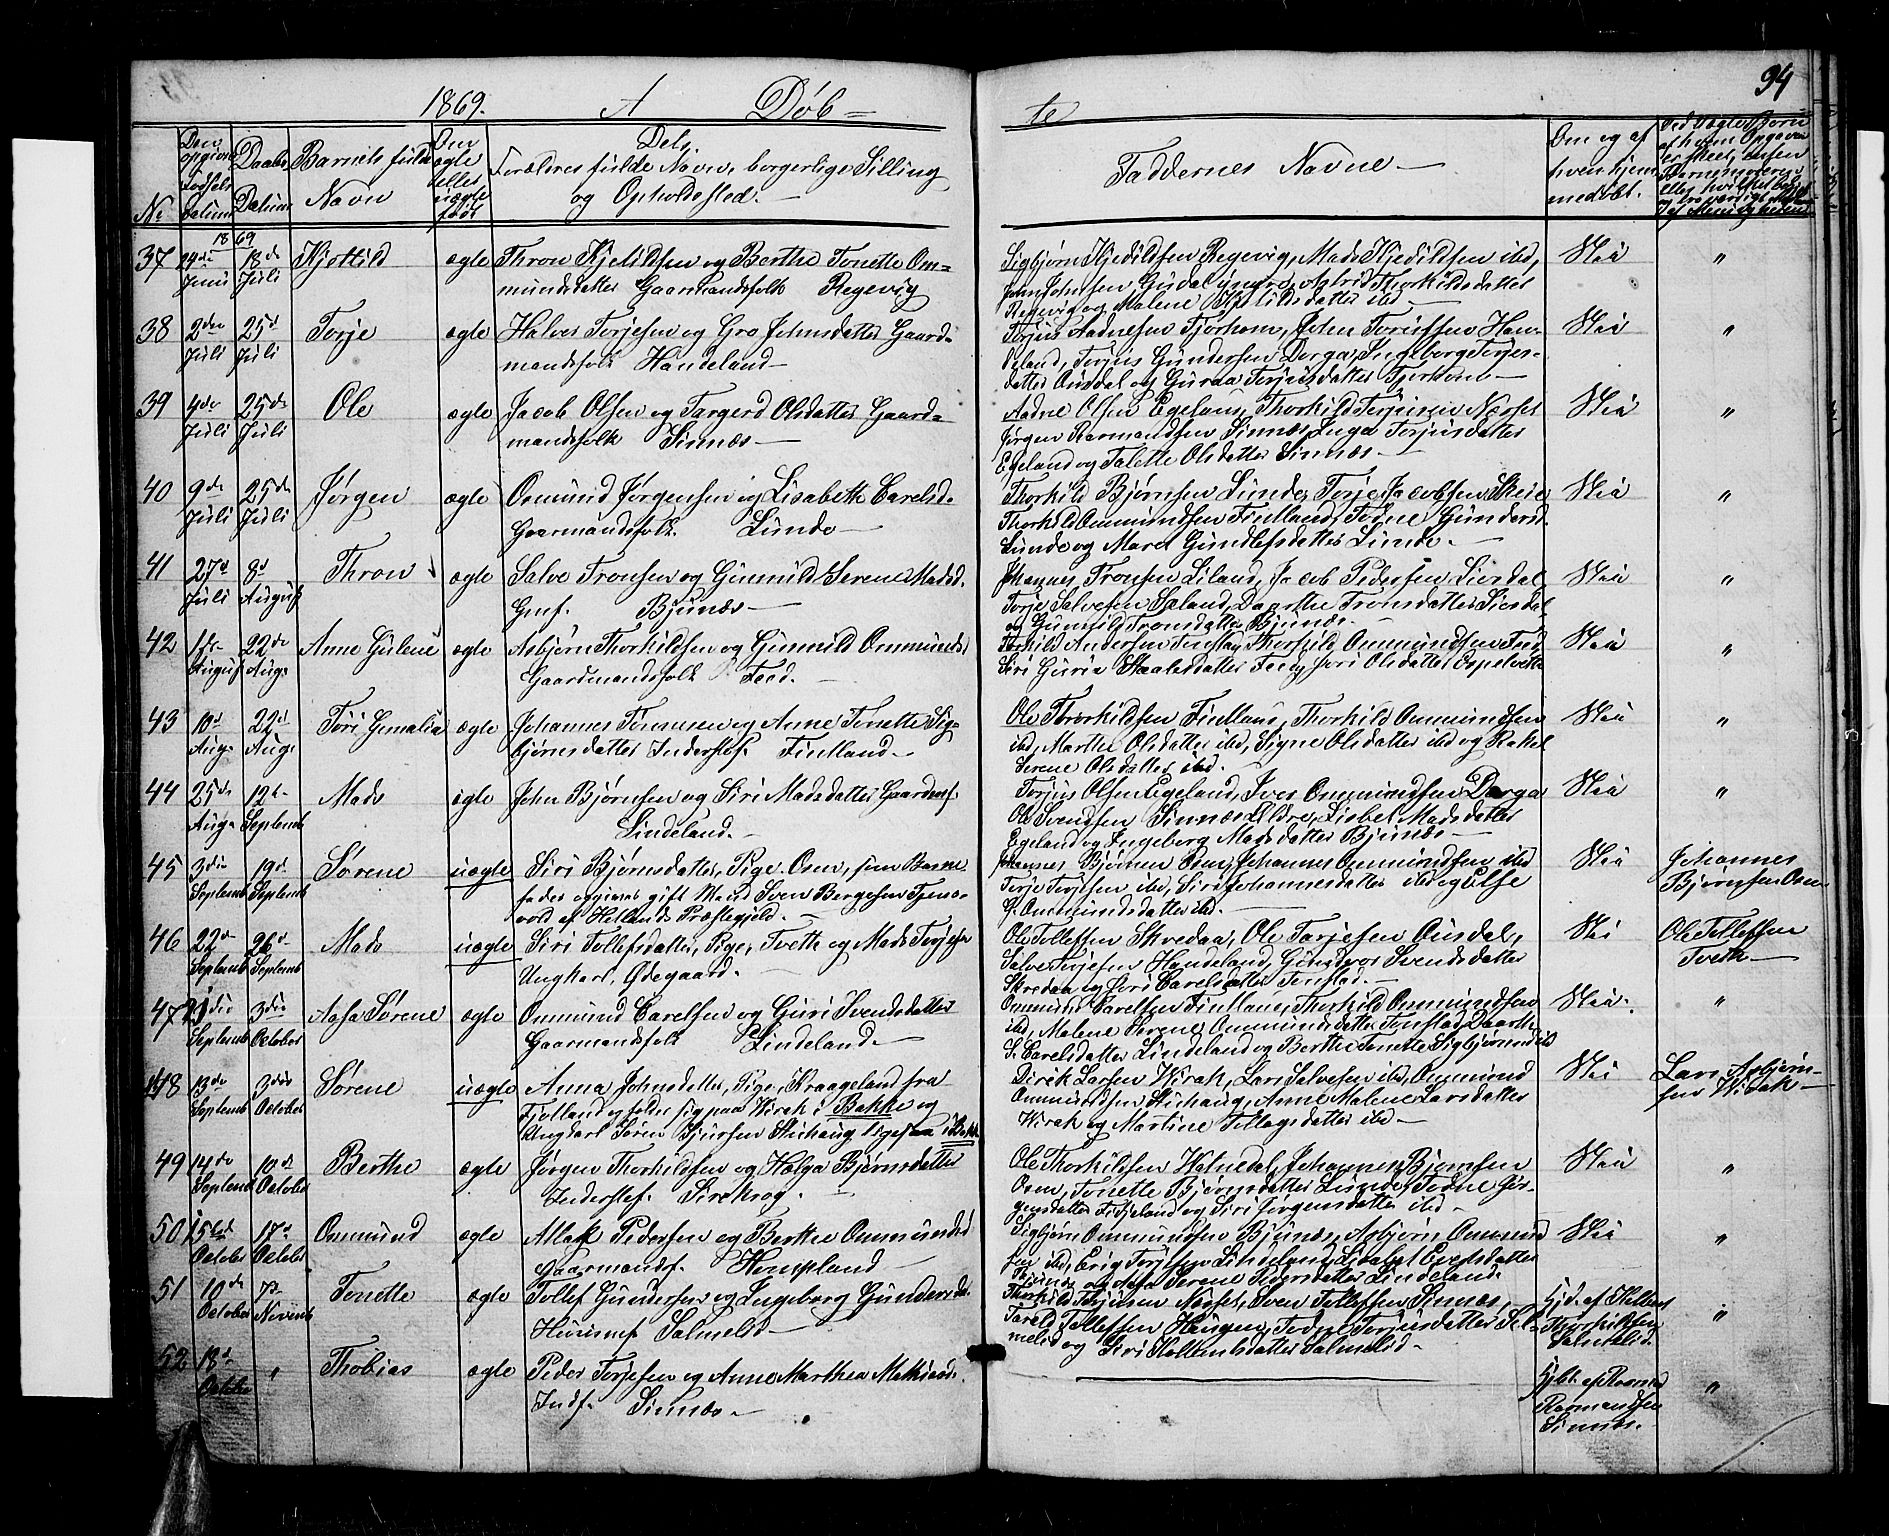 94
1869. A Döb= te
No
Den opgivne Fødsels Datum
Daabs Datum
Barnets fulde Navn
Om ægte eller uægte født
Dels
Forældres fulde Navn, borgerlige Stilling
og Opholdssted.
Faddernes Navne
Om og af hvem hjemmedøbt.
1869
37 14de Juni 18de Juli Kjettild ægte Thron Kjetildsen og Berthe Tonette Om=
mundsdatter Gaarmandsfolk Regevig
Sigbjørn Kjedildsen Regevig, Mads Kjedildsen ibd,
John Johnsen Gusdal, Astrid Thorkildsdatter
Regevig og Malene Kjetildsdatter ibd
Nei "
38 2den Juli 25d Juli Torje ægte Halvor Torjesen og Gro Johnsdatter Gaard=
mandsfolk Handeland
Torjus Aadnesen Tjorhom, John Torjussen Han=
deland, Torjus Gundersen Dorga, Ingeborg Torjes=
datter Ousdal og Guroa Torjusdatter Tjorhom
Nei "
39 4de Juli 25de Juli Ole ægte Jacob Olsen og Targerd Olsdatter Gaard=
mandsfolk Sinnæs
Aadne Olsen Egeland, Thorkild Torjusen Næsset
Jørgen Rasmandsen Sinnæs, Inga Torjusdatter
Egeland og Talette Olsdatter Sinnæs
Nei "
40 9de Juli 25de Juli Jørgen ægte Osmund Jørgensen og Lisabeth Carelsd.
Gaarmandsfolk. Lunde
Thorkild Bjørnsen Lunde, Torje Jacobsen Skeie
Thorkild Ommundsen Fintland, Todne Gundersd.
Lunde og Maret Gundlefsdatter Lunde.
Nei "
41 27d Juli 8d August Thron ægte Salve Tronsen og Gunnild Serene Madsd.
Gmf. Bjunæs
Johannes Tronsen Liland, Jacob Pedersen Sirdal
Torje Salvesen Seland, Daarthe Tronsdatter Sirdal
og Gunnild Tronsdatter Bjunæs
Nei "
42 1ste August 22de Aug. Anne Gulene ægte Asbjørn Thorkildsen og Gunnild Ommundsd
Gaardmandsfolk Feed.
Torkild Andersen Tonstad, Thorkild Ommundsen Feed
Siri Guria Staalesdatter Feed og Siri Olsdatter Espelvette
Nei "
43 10d Aug. 22d Aug. Tori Gemalia ægte Johannes Tønnesen og Anne Tonette Sig=
bjørnsdatter Inderstef. Fintland
Ole Thorkildsen Fintland, Thorkild Ommundsen
ibd, Marthe Olsdatter ibd, Signe Olsdatter ibd og Rakel
Serene Olsdatter ibd.
Nei "
44 25de Aug. 12te Septemb Mads ægte John Bjørnsen og Siri Madsdatter Gaardmf.
Lindeland.
Torjus Olsen Egeland, Iver Ommundsen Dorga
Ole Svendsen Sinnæs, Lisbet Madsdatter
Egeland og Ingeborg Madsdatter Bjunæs
Nei "
45 3die Septemb 19d Septemb Sørene uægte Siri Bjørnsdatter, Pige. Osen, som Barne
fader opgives gift Mand Sven Bergesen Tjens=
vold af Hetlands Præstegjeld.
Johannes Bjørnsen Osen, Johannes Ommundsen ibd
Torje Torjesen ibd, Siri Johannesdatter ibd og Else
G. Ommundsdatter ibd.
Nei Johannes
Bjørnsen Osen
46 22d Septemb 26d Septemb Mads uægte Siri Tollefsdatter, Pige, Tveth og Mads Torjesen
Ungkarl, Ødegaard.
Ole Tollefsen Skredaa, Ole Tarjesen Ousdal,
Salve Torjesen Handeland, Gundvor Svendsdatter
Skredaa og Siri Carelsdatter Tonstad.
Nei Ole Tollefsen
Tveth
47 21die Septemb 3die October Aasa Sørene ægte Ommund Carelsen og Guri Svendsdatter
Gaarmandsfolk Lindeland
Ommund Carelsen Fintland, Thorkild Ommundsen
ibd, Malene Serene Ommundsdatter Tonstad, Daarthe
S. Carelsdatter Lindeland og Berthe Tonette Sigbjørnsd ibd
Nei. "
48 13de Septemb 3die October Sørene uægte Anna Johnsdatter, Pige, Kraageland fra
Fjotland opholder sig paa Virak i Bakke og
Ungkarl Søren Sjursen Stuhaug ligesaa i Bakke
Dirik Larsen Virak, Lars Salvesen ibd, Ommund
Ommundsen Stuhaug, Anne Malene Larsdatter
Virak og Martine Tollagsdatter ibd
Nei Lars Asbjørn=
sen Virak
49 14de Septemb 10d October Berthe ægte Jørgen Thorkildsen og Helga Bjørnsdatter
Inderstef. Sirekrog.
Ole Thorkildsen Hatnedal, Johannes Bjørnsen
Osen, Tonette Bjørnsdatter Lunde, Todne Jør=
gensdatter Fidjeland og Siri Jørgensdatter ibd
Nei "
50 15de October 17d October Ommund ægte Atlak Pedersen og Berthe Ommundsd
Gaarmandsf. Hompland
Sigbjørn Ommundsen Bjunæs, Asbjørn Ommund
sen ibd, Erig Torjesen Lindeland, Lisabet Evertsdatter
Bjunæs og Aasa Serene Pedersdatter Lindeland.
Nei "
51 10de October 7d Novemb Tonette ægte Tollef Gundersen og Ingeborg Gundersd.
Huusmf Salmelid
Thorkild Torjusen Næsset, Sven Tollefsen Sinnæs,
Tarald Tollefsen Haugen, Todne Torjusdatter Sal=
melid og Siri Kittelsdatter Salmelid.
Hjd. af
Thorkildsen
Salmelid. "
52 18d Octobe " Thobias ægte Peder Torjesen og Anne Marthea Mathiasd.
Indf. Sinnæs
Hjdbt. af Rasmus
Rasmandsen
Sinnæs. "